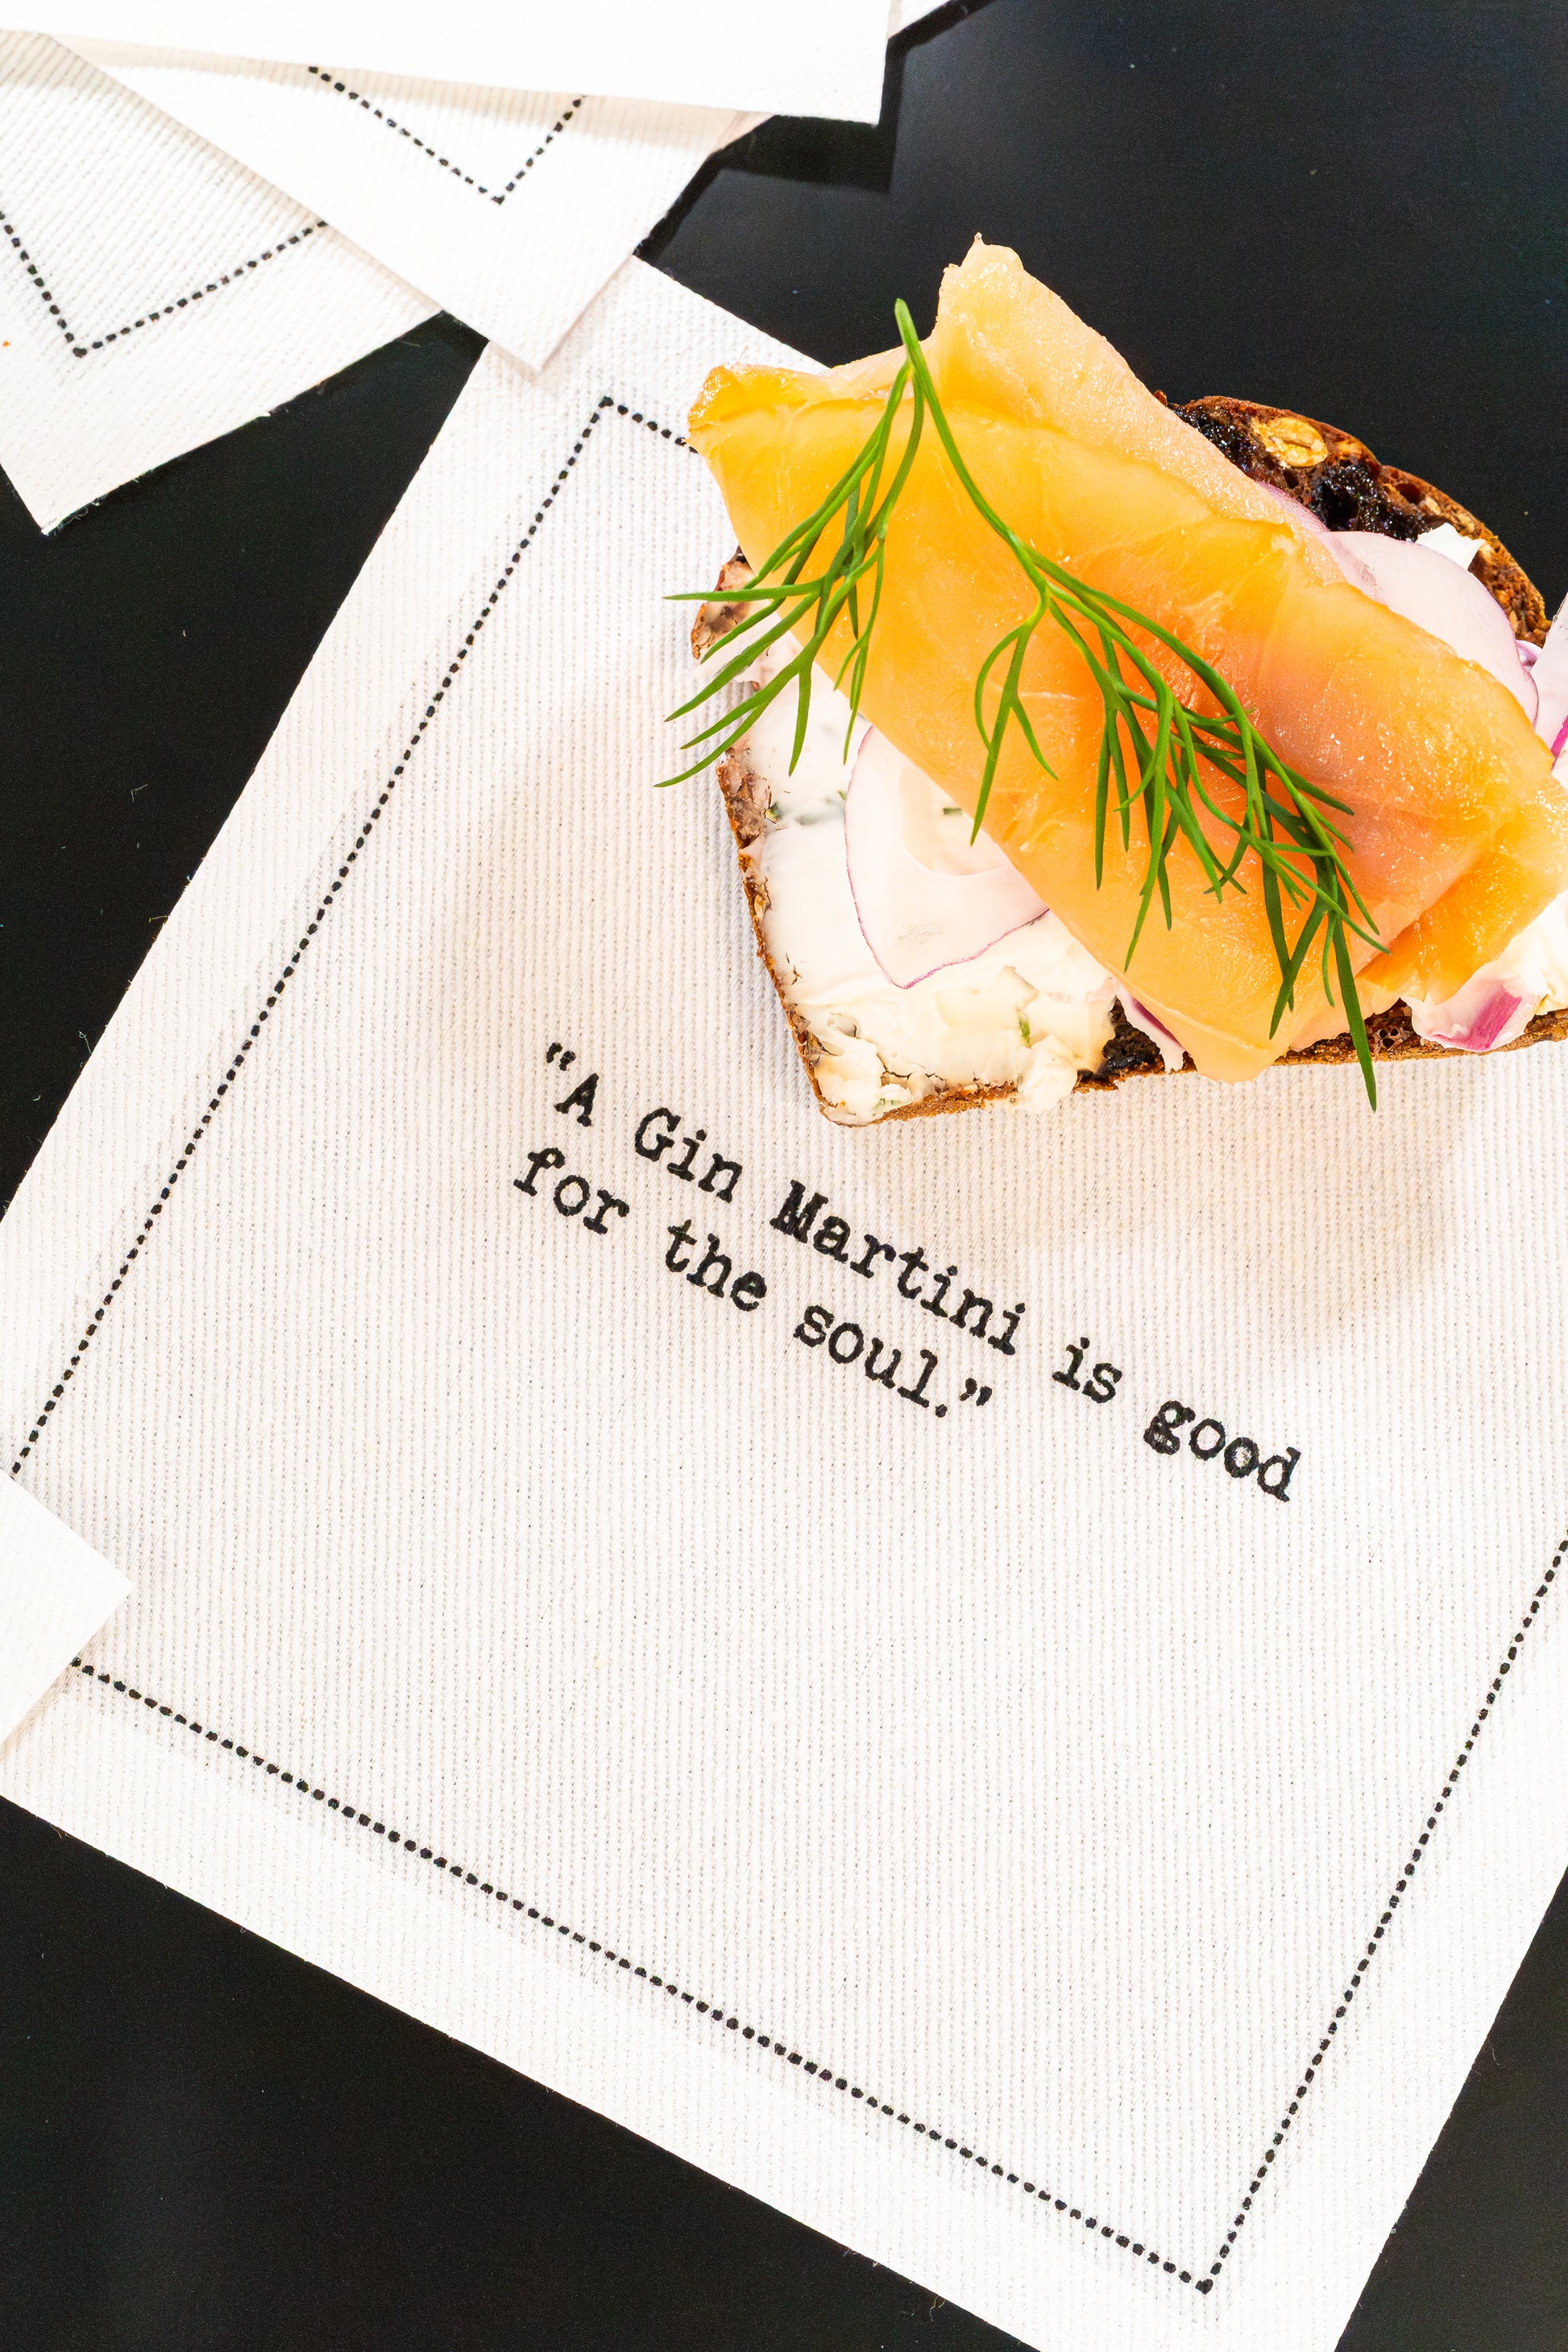 "A Gin Martini is good
for the soul.”